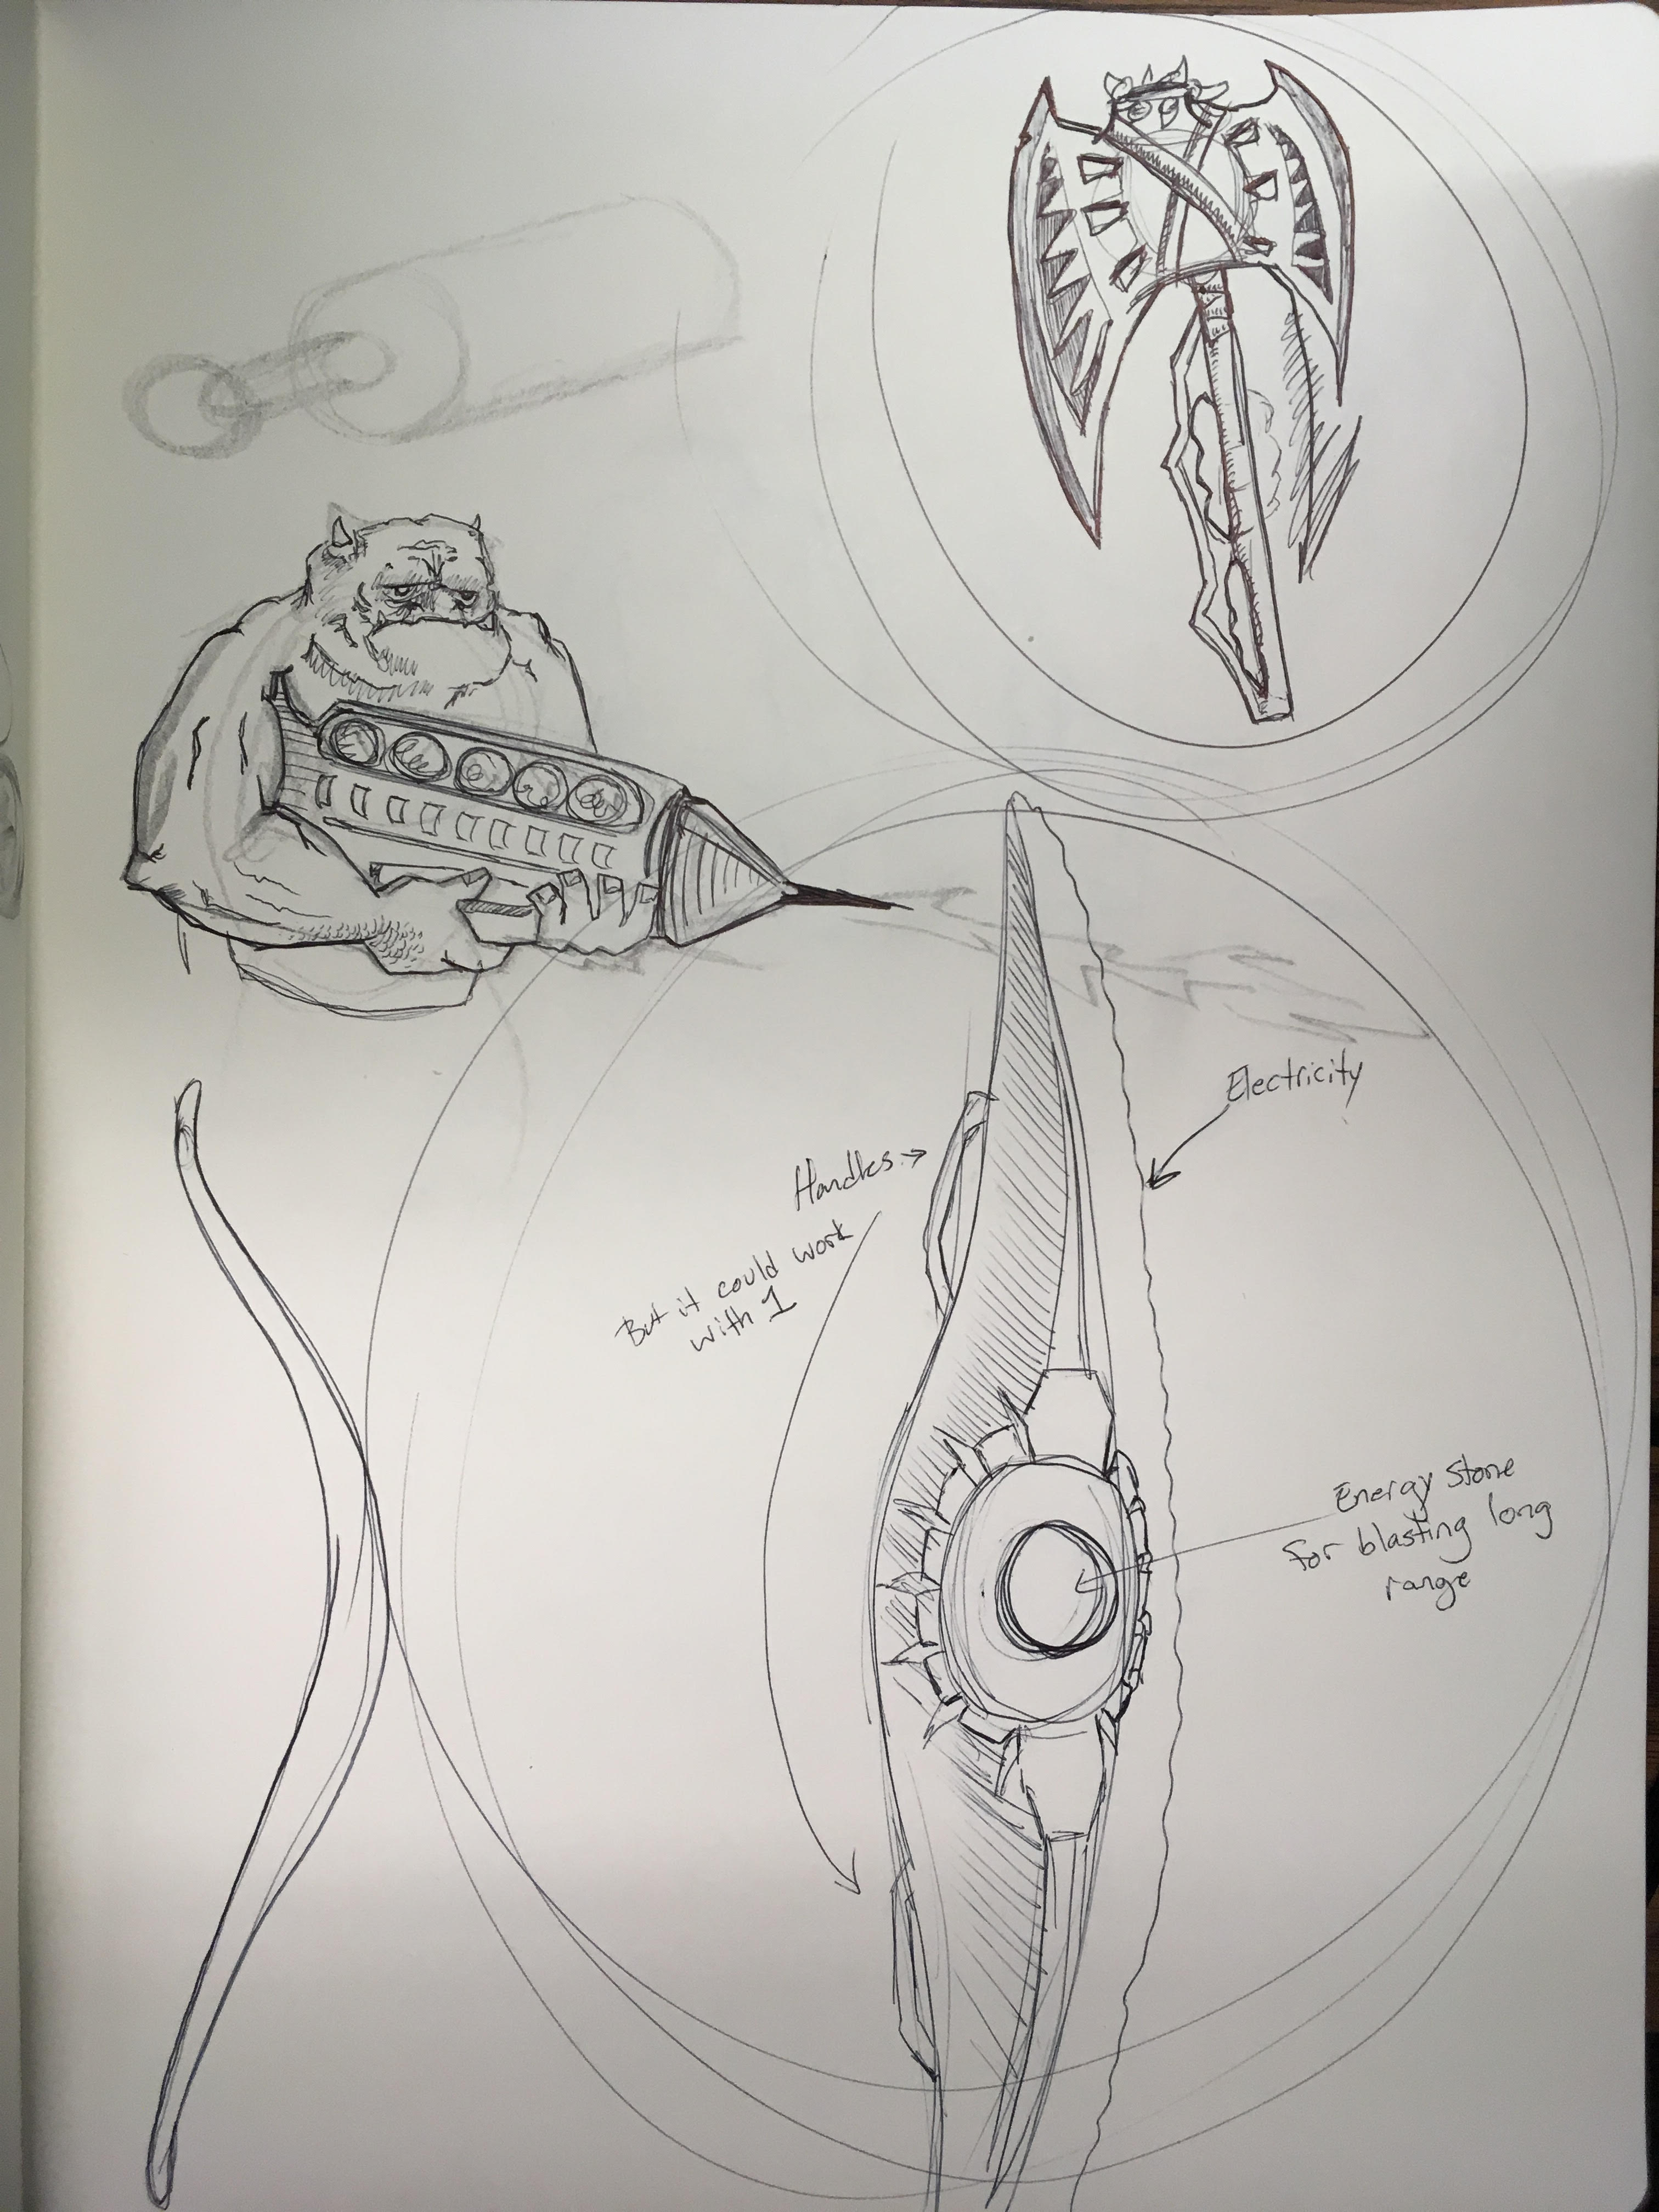 Electricity
Handles →
But it could work
with 1
Energy Stone
for blasting long
range